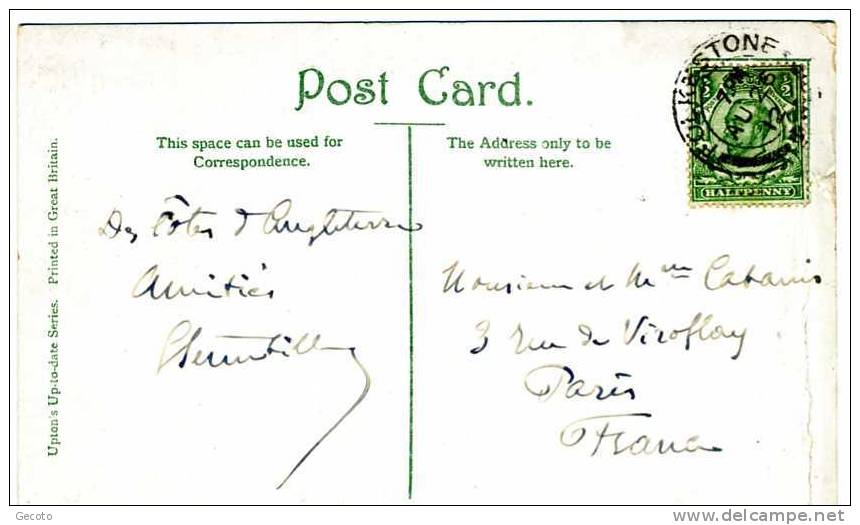 Post Card.
This space can be used for
Correspondence.
The Address only to be
written here.
FOLKESTONE
7 PM
AU 26
12
HALFPENNY
Upton's Up-to-date Series. Printed in Great Britain.
Des Côtes d'Angleterre
Amitiés
Monsieur et Mme Cabanis
3 rue de Viroflay
Paris
France
Gecoto
delcampe.net